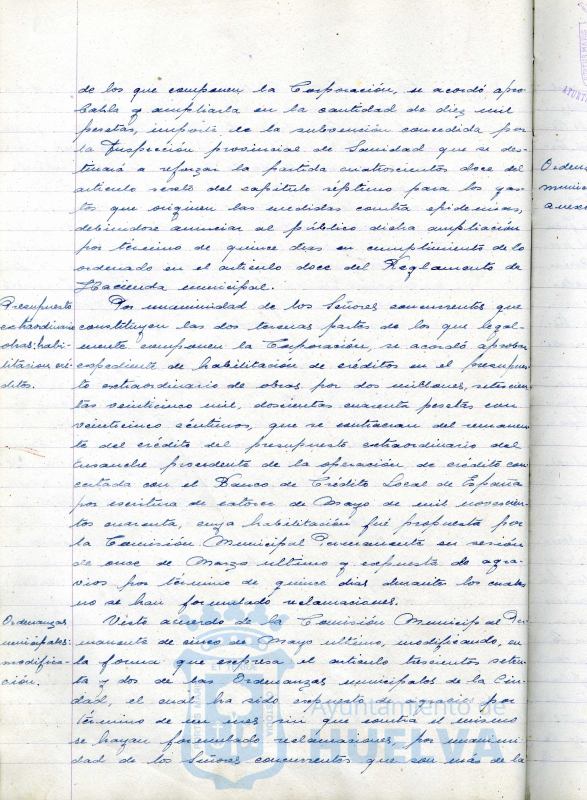 de los que componen la Corporación, se acordó apro-
barla y ampliarla en la cantidad de diez mil
pesetas, importe de la subvención concedida por
la Inspección provincial de Sanidad que se des-
tinará a reforzar la partida cuatrocientos doce del
artículo sexto del capítulo séptimo para los gas-
tos que originen las medidas contra epidemias,
debiéndose anunciar al público dicha ampliación
por término de quince días en cumplimiento de lo
ordenado en el artículo doce del Reglamento de
Hacienda municipal.
Presupuesto
extraordinario
obras; habi-
litación cré-
ditos.
Por unanimidad de los Señores concurrentes que
constituyen las dos terceras partes de los que legal-
mente componen la Corporación, se acordó aprobar
expediente de habilitación de créditos en el presupues-
to extraordinario de obras por dos millones, setecien-
tas veinticinco mil, doscientas cuarenta pesetas con
veinticinco céntimos, que se contraen del remanen-
te del crédito del presupuesto extraordinario del
Ensanche procedente de la operación de crédito con-
certada con el Banco de Crédito Local de España
por escritura de catorce de Mayo de mil novecien-
tos cuarenta, cuya habilitación fué propuesta por
la Comisión Municipal Permanente en sesión
de once de Marzo último y expuesta de agra-
vios por término de quince días durante los cuales
no se han formulado reclamaciones.
Ordenanzas
municipales:
modifica-
ción.
Visto acuerdo de la Comisión Municipal Per-
manente de cinco de Mayo último, modificando, en
la forma que expresa el artículo trescientos seten-
ta y dos de las Ordenanzas municipales de la Ciu-
dad, el cual ha sido expuesto de agravios por
término de un mes sin que contra el mismo
se hayan formulado reclamaciones, por unanimi-
dad de los Señores concurrentes que son más de la
Ordena
munici
anex
Ayuntamiento de
HUELVA